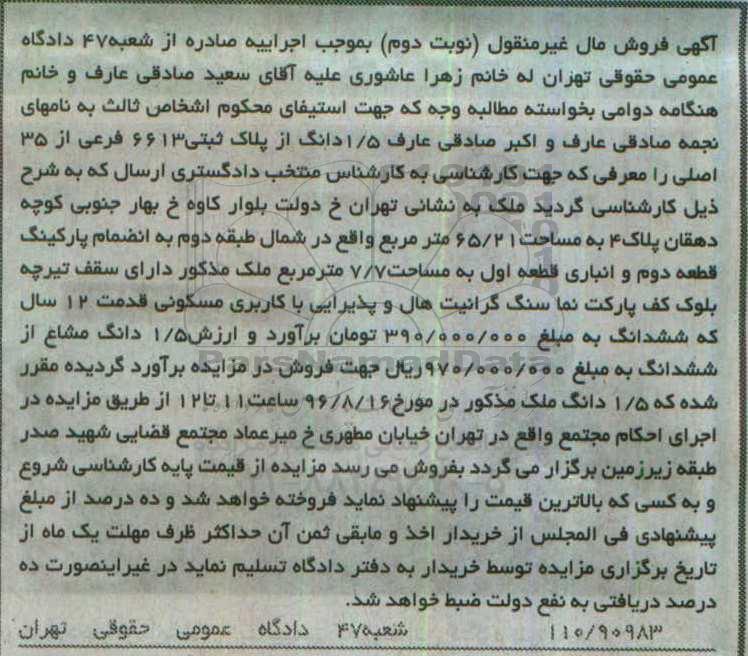 آگهی فروش مال غیرمنقول (نوبت دوم) بموجب اجراییه صادره از شعبه۴۷ دادگاه
عمومی حقوقی تهران له خانم زهرا عاشوری علیه آقای سعید صادقی عارف و خانم
هنگامه دوامی بخواسته مطالبه وجه که جهت استیفای محکوم اشخاص ثالث به نامهای
نجمه صادقی عارف و اکبر صادقی عارف ۱/۵دانگ از پلاک ثبتی۶۶۱۳ فرعی از ۳۵
اصلی را معرفی که جهت کارشناسی به کارشناس منتخب دادگستری ارسال که به شرح
ذیل کارشناسی گردید ملک به نشانی تهران خ دولت بلوار کاوه خ بهار جنوبی کوچه
دهقان پلاک۴ به مساحت۶۵/۲۱ متر مربع واقع در شمال طبقه دوم به انضمام پارکینگ
قطعه دوم و انباری قطعه اول به مساحت۷/۷ مترمربع ملک مذکور دارای سقف تیرچه
بلوک کف پارکت نما سنگ گرانیت هال و پذیرایی با کاربری مسکونی قدمت ۱۲ سال
که ششدانگ به مبلغ ۳۹۰/۰۰۰/۰۰۰ تومان برآورد و ارزش۱/۵ دانگ مشاع از
ششدانگ به مبلغ ۹۷۰/۰۰۰/۰۰۰ریال جهت فروش در مزایده برآورد گردیده مقرر
شده که ۱/۵ دانگ ملک مذکور در مورخ۹۶/۸/۱۶ ساعت۱۱ تا۱۲ از طریق مزایده در
اجرای احکام مجتمع واقع در تهران خیابان مطهری خ میرعماد مجتمع قضایی شهید صدر
طبقه زیرزمین برگزار می گردد بفروش می رسد مزایده از قیمت پایه کارشناسی شروع
و به کسی که بالاترین قیمت را پیشنهاد نماید فروخته خواهد شد و ده درصد از مبلغ
پیشنهادی فی المجلس از خریدار اخذ و مابقی ثمن آن حداکثر ظرف مهلت یک ماه از
تاریخ برگزاری مزایده توسط خریدار به دفتر دادگاه تسلیم نماید در غیراینصورت ده
درصد دریافتی به نفع دولت ضبط خواهد شد.
۱۱۰/۹۰۹۸۳ شعبه۴۷ دادگاه عمومی حقوقی تهران
ParsNamadData